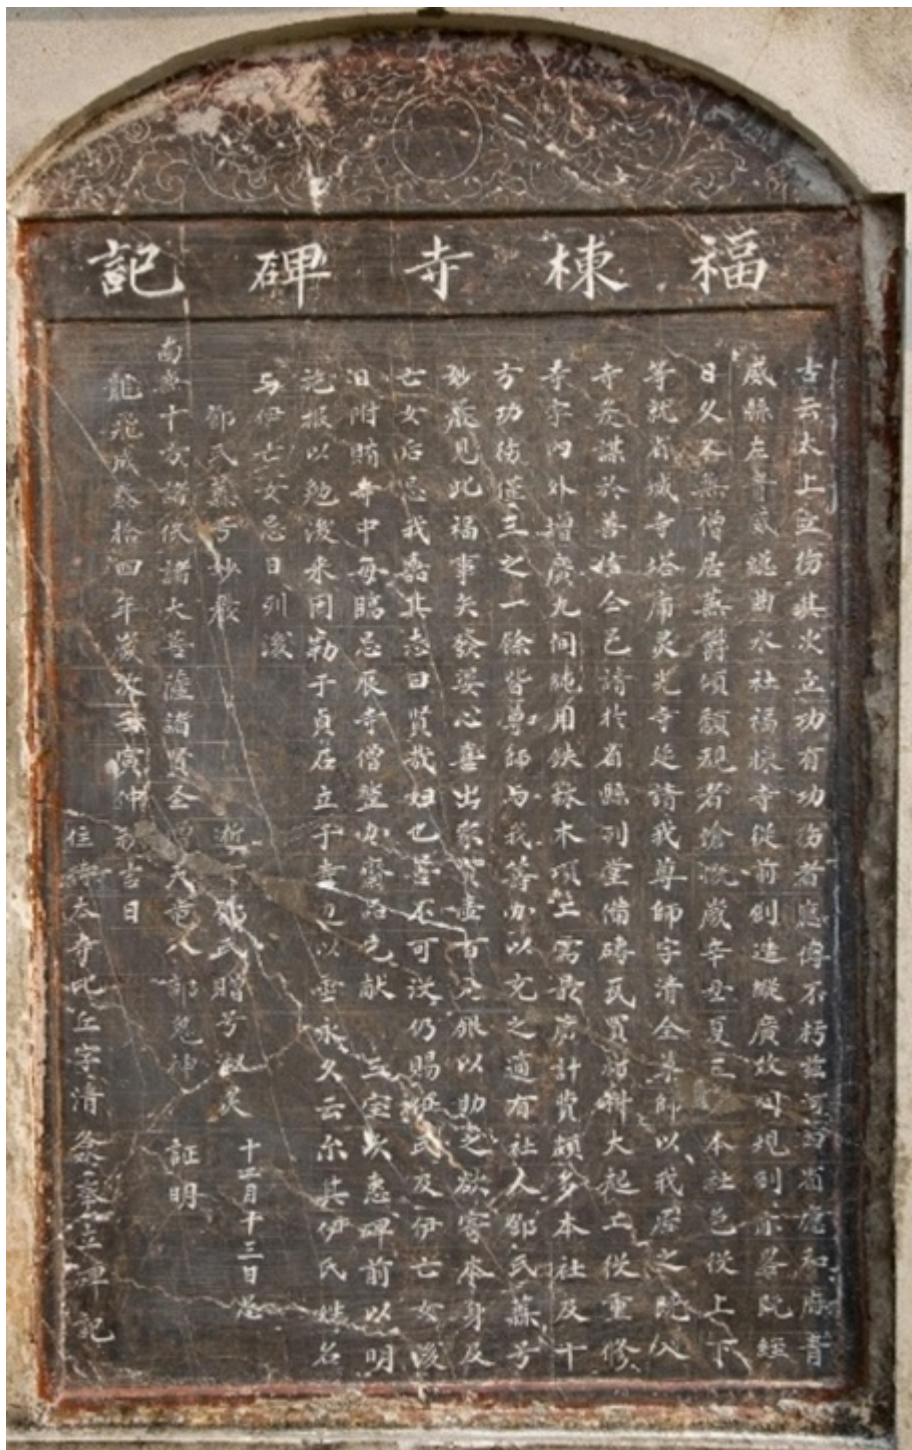 福棟寺碑記
古云太上立德其次立功有功德者應傳不朽茲河內省應和府青
威縣左青威總曲水社福棟寺從前創造縱廣效同規則亦略既經
日久本無僧居蕪欝頃頹視者愴慨歲辛丑夏三 本社邑從上下
等就省城寺塔庸灵光寺延請我尊師字清全尊師以我居之既入
寺爰謀於善信仝邑請於省縣列堂備磚瓦買材料大起工從重修
寺宇內外增廣九間純用鉄林木項工需最廣計費頗多本社及十
方功德僅三之一餘皆尊師与我等办以充之適有社人鄧氏蘂号
妙嚴見此福事矣發婆心喜出家貲壹百 銀以助之欲寄本身及
亡女后忌我嘉其志曰賢哉妇也善不可没仍賜伊氏及伊亡女後
日附晴寺中每臨忌辰寺僧整办齋品 献 三宝次惠碑前以明
施報以勉後來同勒于貞石立于寺 以垂永久云尔其伊氏姓名
与伊亡女忌日列後
鄧氏蘂号妙嚴 逝 鄧氏贈号 灵 十二月十三日忌
南無十方諸佛諸大菩薩諸賢圣僧天竜八部鬼神 証明
龍飛成泰拾四年歲次壬寅仲秋吉日
住持本寺比丘字清 奉立碑記